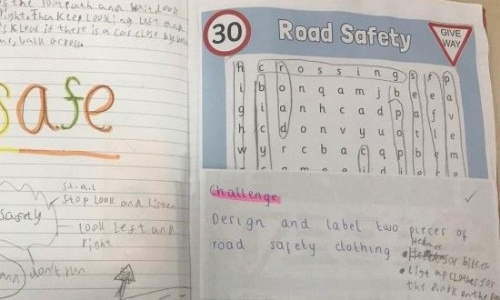 the
and
Look
right, then keep looking left and
if there is a car close by
back across
safe
S.L.a.L
Stop Look and Listen
safety
look left and
right
don't run
30
Road Safety
GIVE
WAY
h c r o s s i n g s r p
i b o n q a m j b e e a
g i a n h c a d p a f v
h c d o n v y u o t l e
w y r c b a c q p b e m
Challenge
Design and label two pieces of
road safety clothing
• for bikes
• light up clothes for
the dark